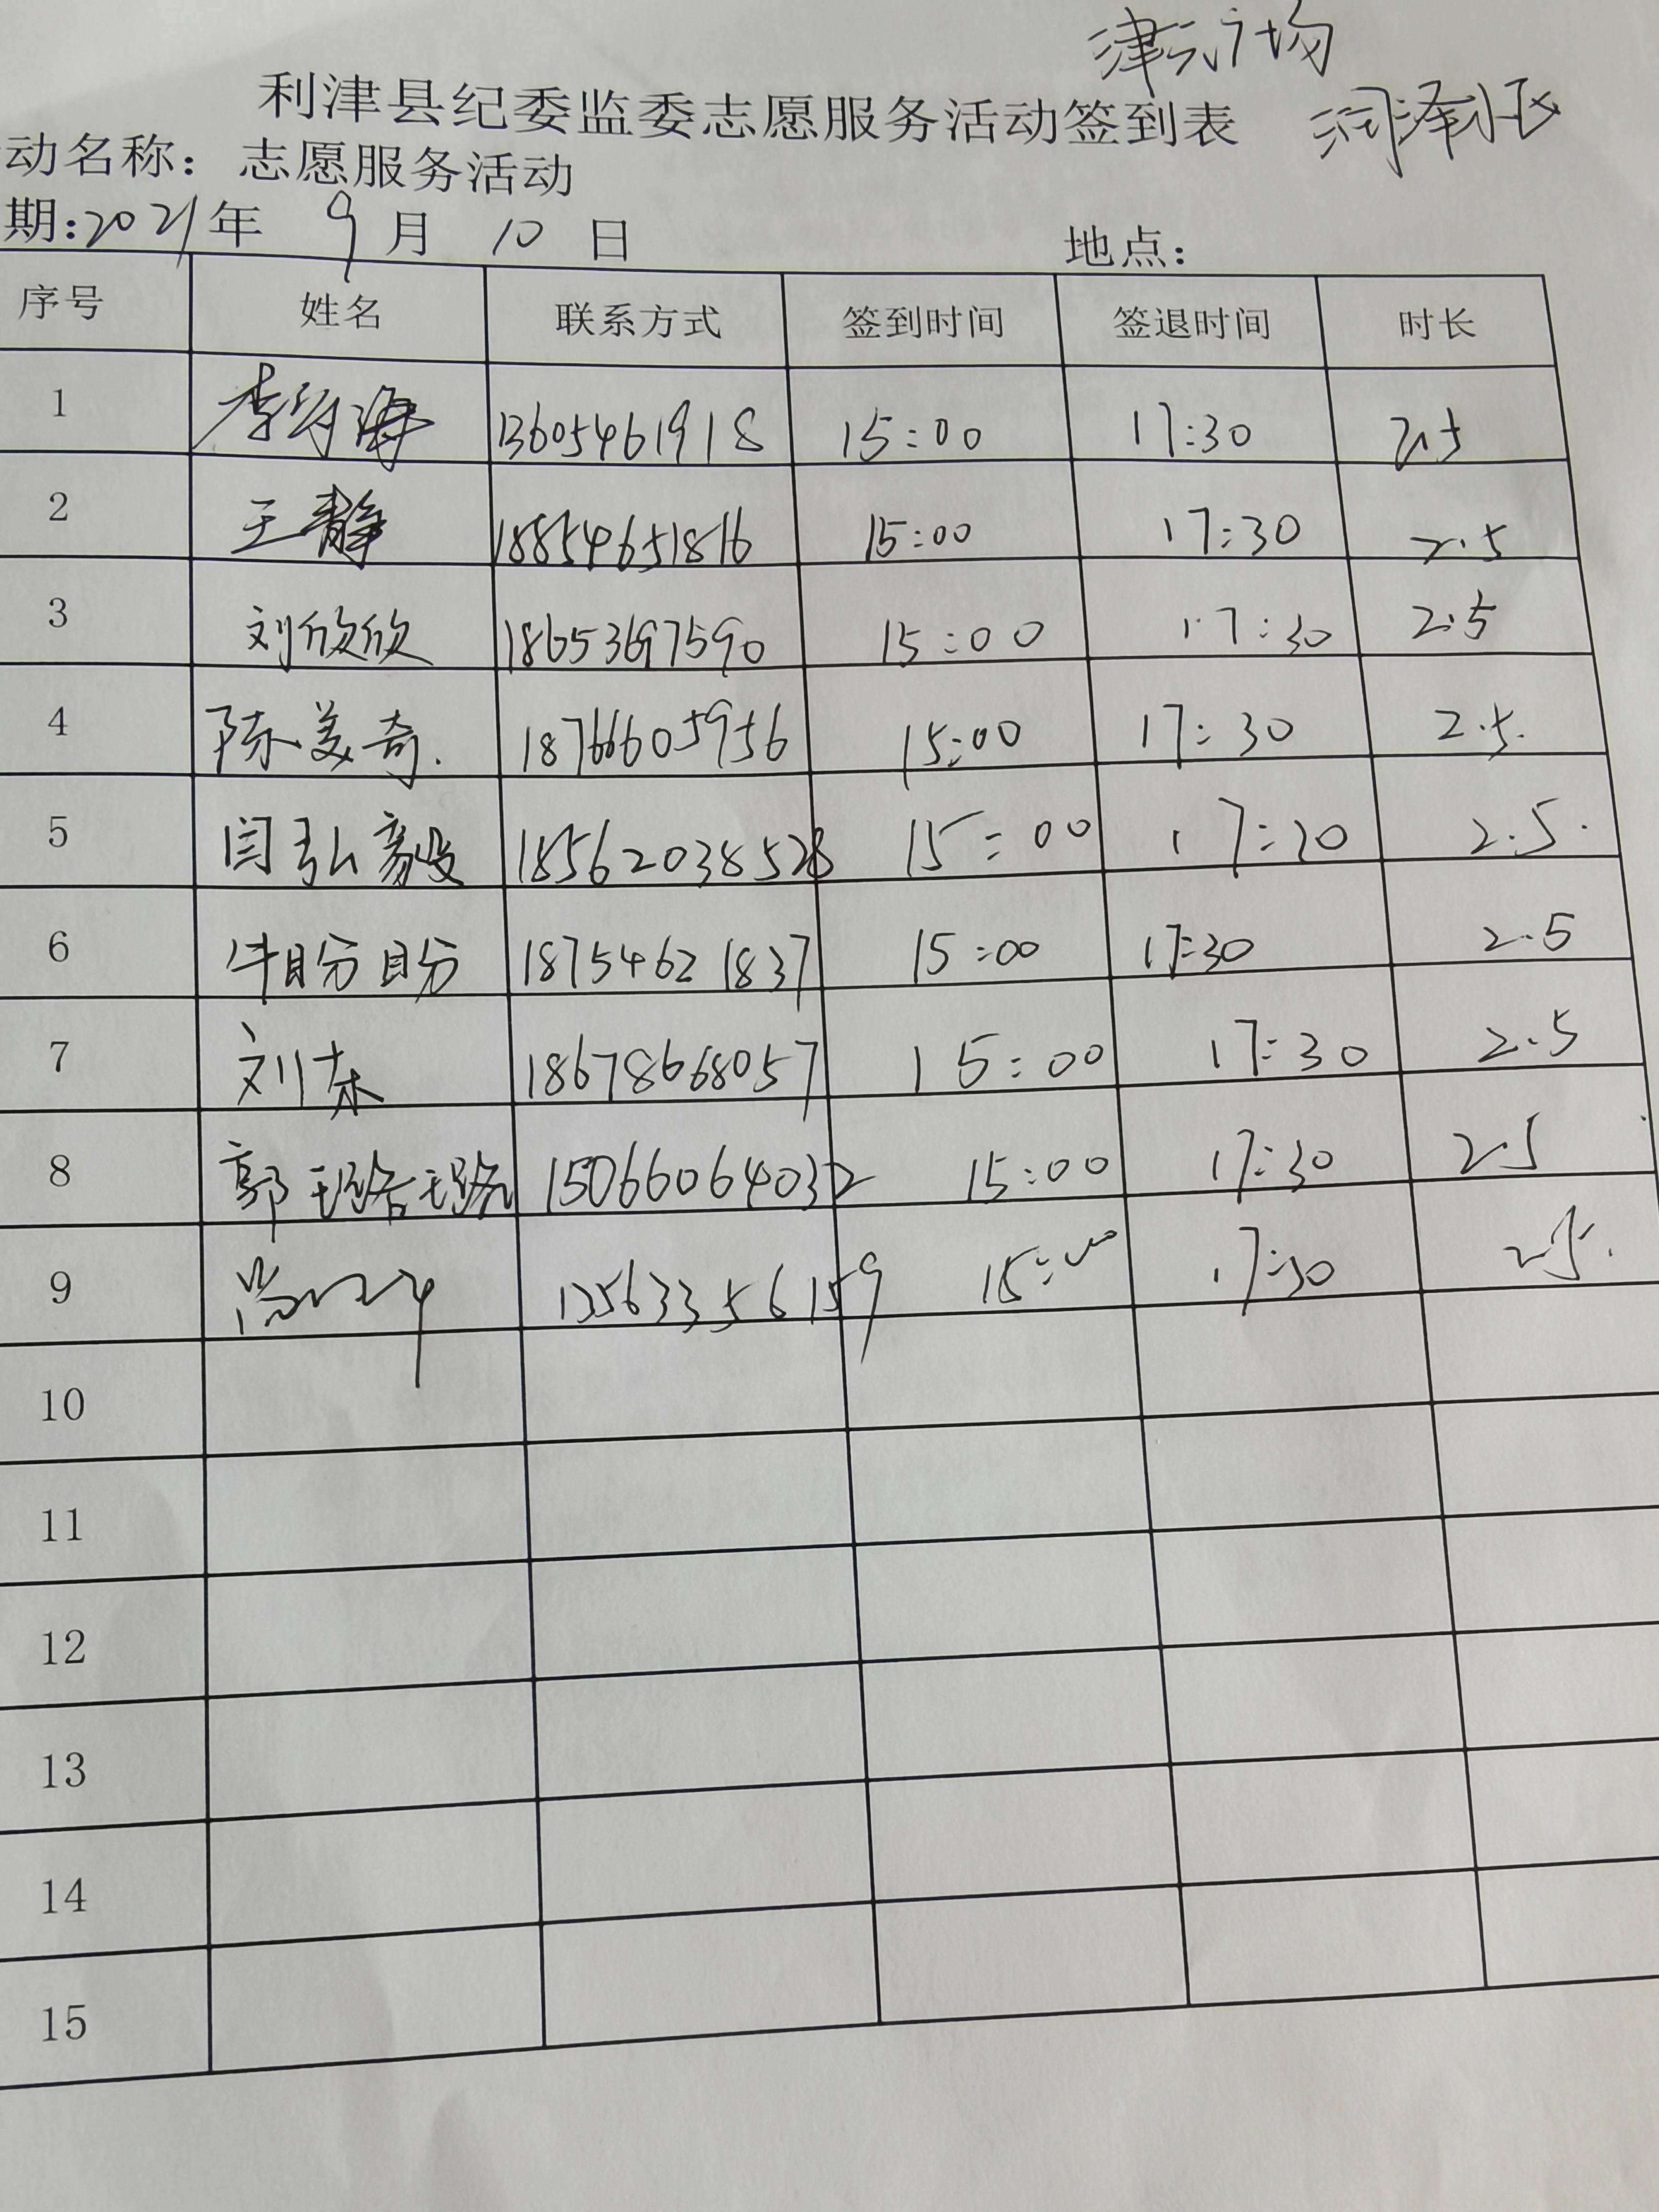 津苑广场
利津县纪委监委志愿服务活动签到表 润泽小区
动名称：志愿服务活动
期：2021年 9月 10日 地点：
序号 姓名 联系方式 签到时间 签退时间 时长
1 李 海 13605461918 15:00 17:30 2.5
2 王静 18854651816 15:00 17:30 2.5
3 刘欣欣 18653697590 15:00 17:30 2.5
4 陈美奇. 18766605956 15:00 17:30 2.5.
5 闫弘毅 18562038528 15:00 17:30 2.5.
6 牛盼盼 18754621837 15:00 17:30 2.5
7 刘东 18678668057 15:00 17:30 2.5
8 郭璐璐 15066064032 15:00 17:30 2.5
9 15:00 17:30 2.5.
10
11
12
13
14
15